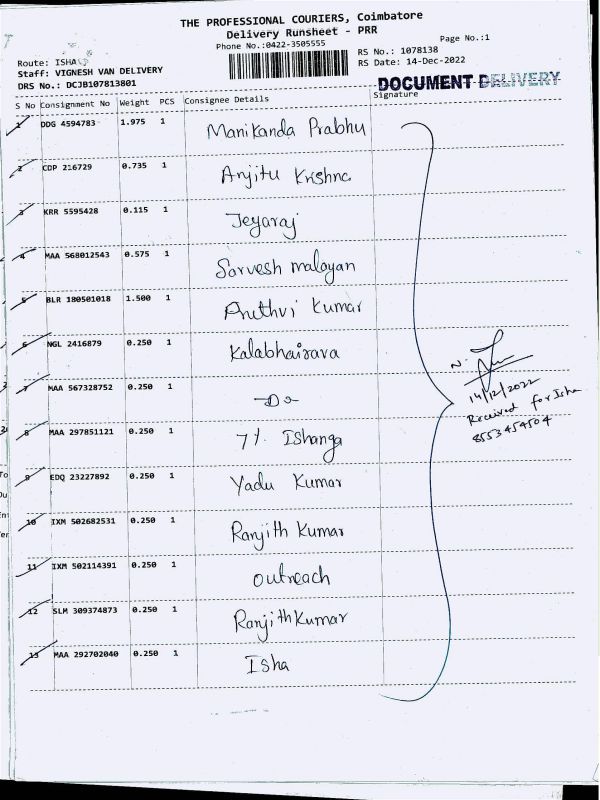 THE PROFESSIONAL COURIERS, Coimbatore
Delivery Runsheet - PRR
Phone No.:0422-3505555
Page No.:1
Route: ISHA
RS No.: 1078138
Staff: VIGNESH VAN DELIVERY
RS Date: 14-Dec-2022
DRS No.: DCJB107813801
DOCUMENT DELIVERY
S No Consignment No Weight PCS Consignee Details Signature
1 DDG 4594783 1.975 1 Manikanda Prabhu
2 CDP 216729 0.735 1 Anjitu Krishna
3 KRR 5595428 0.115 1 Jeyaraj
4 MAA 568012543 0.575 1 Sarvesh malayan
5 BLR 180501018 1.500 1 Pruthvi Kumar
6 NGL 2416879 0.250 1 Kalabhairava
7 MAA 567328752 0.250 1 -Do-
8 MAA 297851121 0.250 1 7%. Ishanga
9 EDQ 23227892 0.250 1 Yadu Kumar
10 IXM 502682531 0.250 1 Ranjith Kumar
11 IXM 502114391 0.250 1 outreach
12 SLM 309374873 0.250 1 Ranjith Kumar
13 MAA 292702040 0.250 1 Isha
14/12/2022
Received for Isha
8553454504